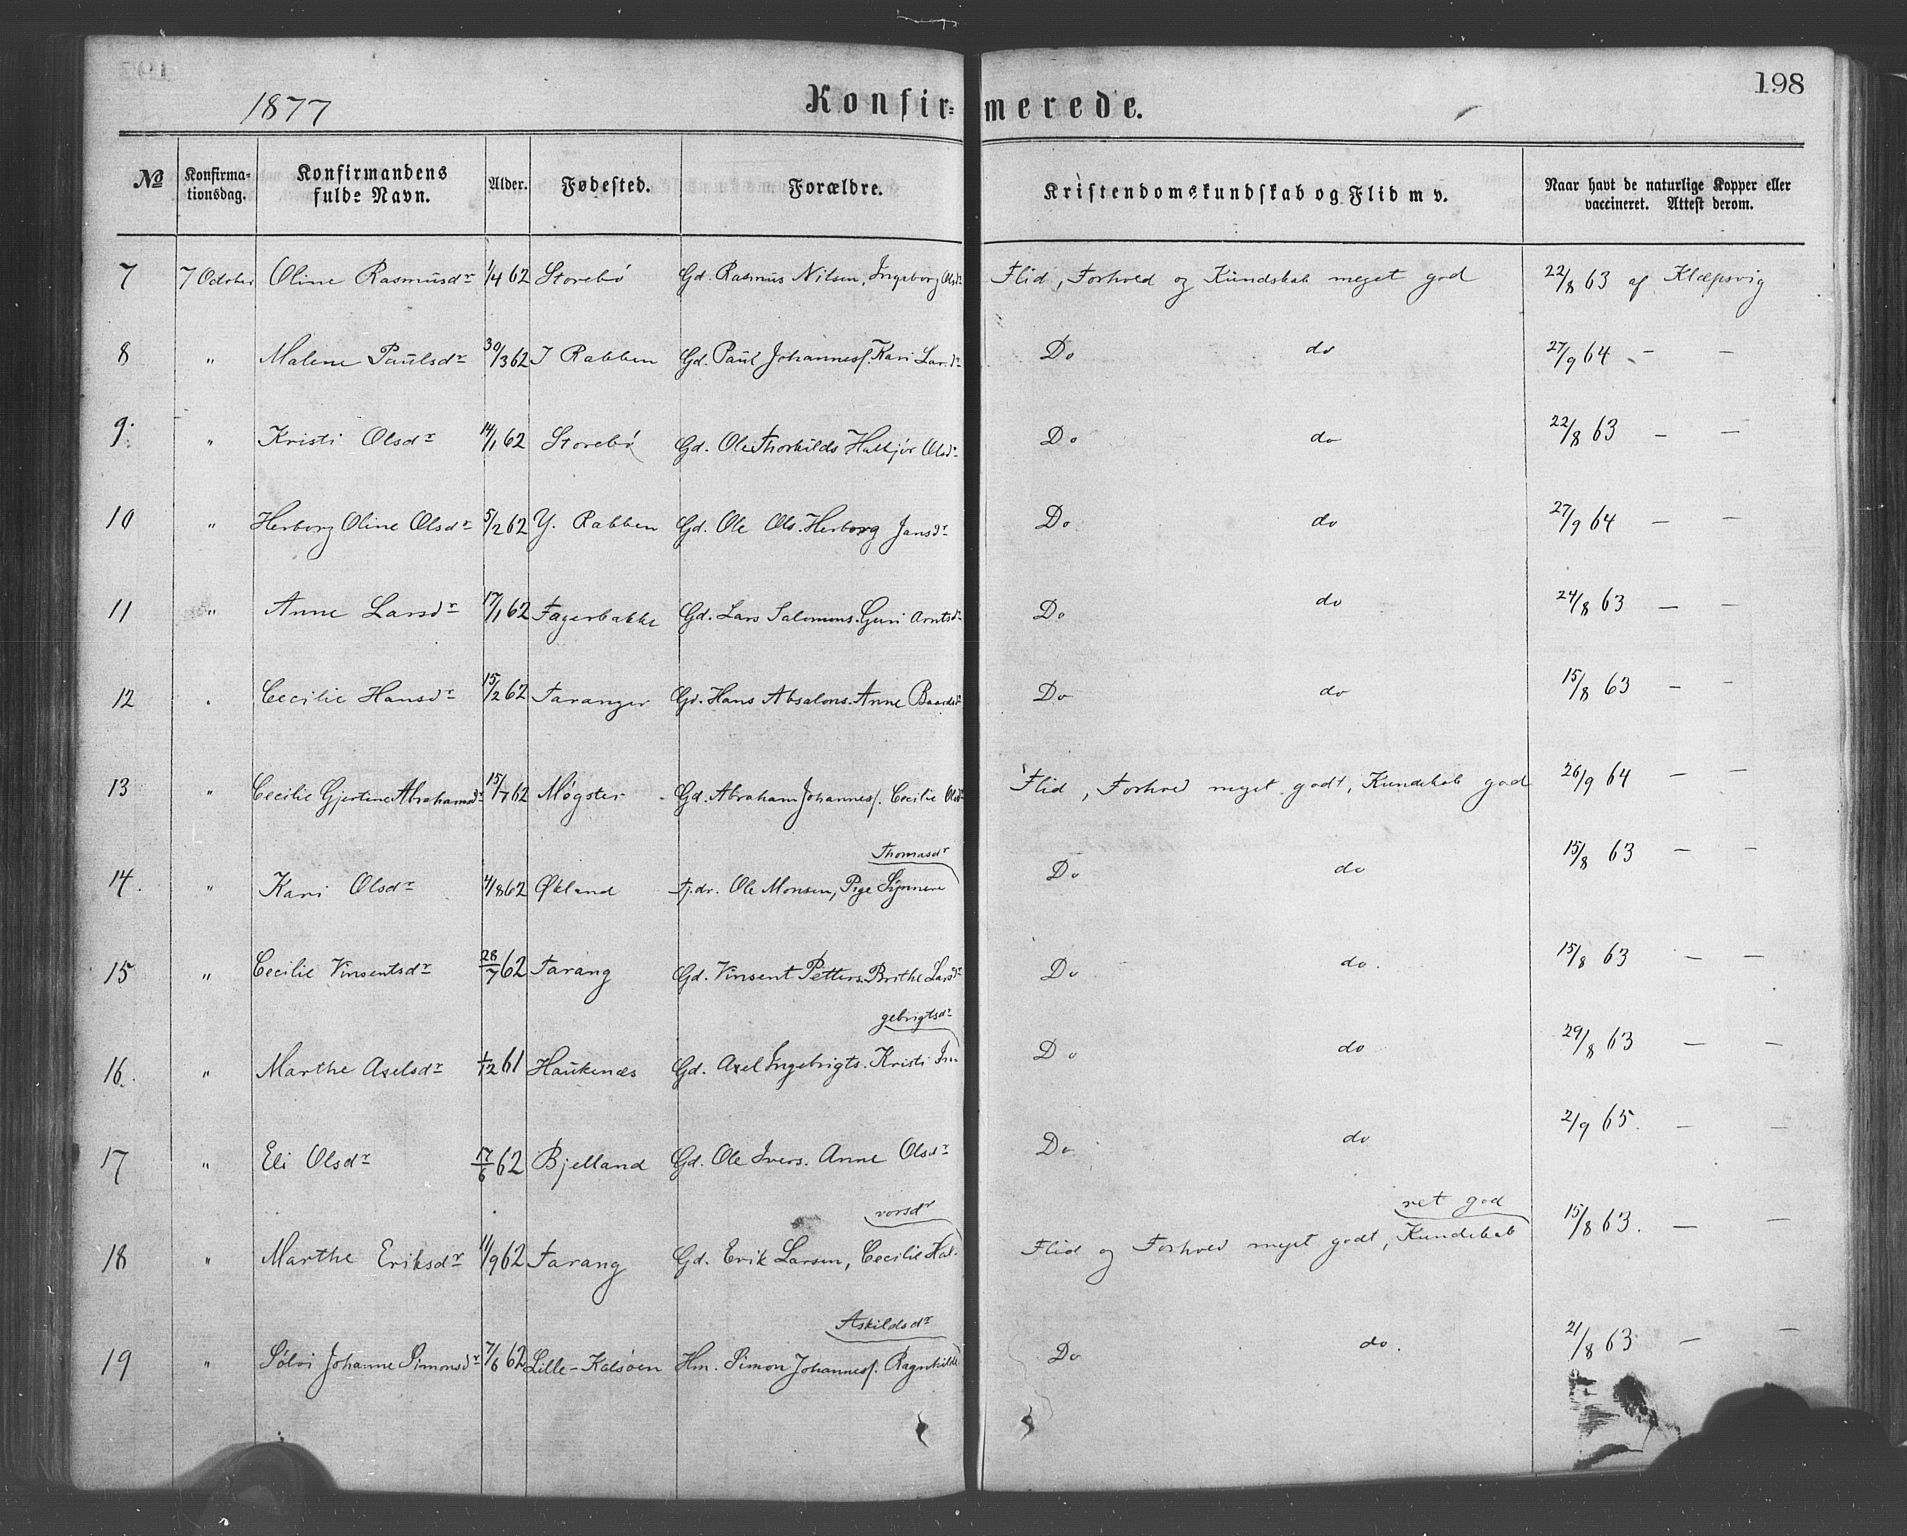 198
1877
Konfir=merede.
No Konfirma-tionsdag. Konfirmandens fulde Navn. Alder. Fødested. Forældre. Kristendomskundskab og Flid m v. Naar havt de naturlige Kopper eller vaccineret. Attest derom.
7 7 October Oline Rasmusdr 1/4 62 Storebø Gd. Rasmus Nilsen, Ingeborg Olsdr Flid, Forhold og Kundskab meget god 22/8 63 af Klæpsvig
8 " Malene Paulsdr 30/3 62 I Rabben Gd. Paul Johannesf. Kari Larsdr Do do 27/9 64 — —
9. " Kristi Olsdr 14/1 62 Storebø Gd. Ole Thorkilds Halkjør Olsdr Do do 22/8 63 — —
10 " Herborg Oline Olsdr 5/2 62 Y. Rabben Gd. Ole Ols. Herborg Jansdr Do do 27/9 64 — —
11 " Anne Larsdr 17/1 62 Fagerbakke Gd. Lars Salomons. Guri Arntsdr Do do 24/8 63 — —
12 " Cecilie Hansdr 15/2 62 Taranger Gd. Hans Absalons. Anne Baardsdr Do do 15/8 63 — —
13 " Cecilie Gjertine Abrahamsdr 15/7 62 Møgster Gd. Abraham Johannesf. Cecilie Olsdr Flid, Forhold meget godt, Kundskab god 26/9 64 — —
Thomasdr
14. " Kari Olsdr 4/8 62 Økland Tj.dr. Ole Monsen, Pige Do do 15/8 63 — —
15 " Cecilie Vinsentsdr 28/7 62 Tarang Gd. Vinsent Petters. Brithe Larsdr Do do. 15/8 63 — —
gebrigtsdr
16. " Marthe Axelsdr 1/12 61 Haukenæs Gd. Axel Ingebrigts. Kristi In- Do do 29/8 63 — —
17 " Eli Olsdr 17/6 62 Bjelland Gd. Ole Ivers. Anne Olsdr Do do 2/9 65. — —
vorsdr ret god
18 " Marthe Eriksdr 11/9 62 Tarang Gd. Erik Larsen, Cecilie Hal- Flid og Forhold meget godt, Kundskab 15/8 63. — —
Askildsdr
19 " Sølvi Johanne Simonsdr 7/6 62 Lille-Kalsøen Hm. Simon Johannesf. Ragnhilde Do do. 21/8 63 — —